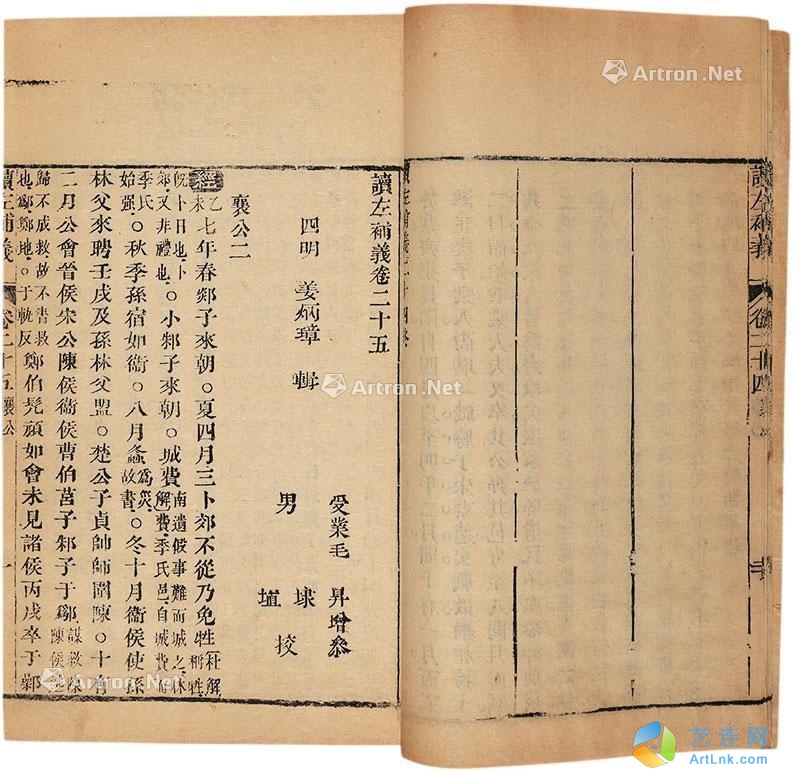 讀左補義 卷二十四 襄公 二
讀左補義卷二十五
四明 姜炳璋 輯
受業毛 昇增參
男 埭 埴 校
襄公二
經乙未七年春郯子來朝○夏四月三卜郊不從乃免牲杜解稱牲
既卜日也卜郊又非禮也○小邾子來朝○城費南遺假事難而城之林解費季氏邑自城費而
季氏始强○秋季孫宿如衞○八月螽爲災故書○冬十月衞侯使孫
林父來聘壬戌及孫林父盟○楚公子貞帥師圍陳○十有
二月公會晉侯宋公陳侯衞侯曹伯莒子邾子于鄬謀救陳陳侯逃
歸不成救故不書救也鄬鄭地○于軌反鄭伯髡頑如會未見諸侯丙戌卒于鄵
讀左補義 卷二十五 襄公 一
Artron.Net
Artron.Net
Artron.Net
Artron.Net
艺连网
ArtLnk.com